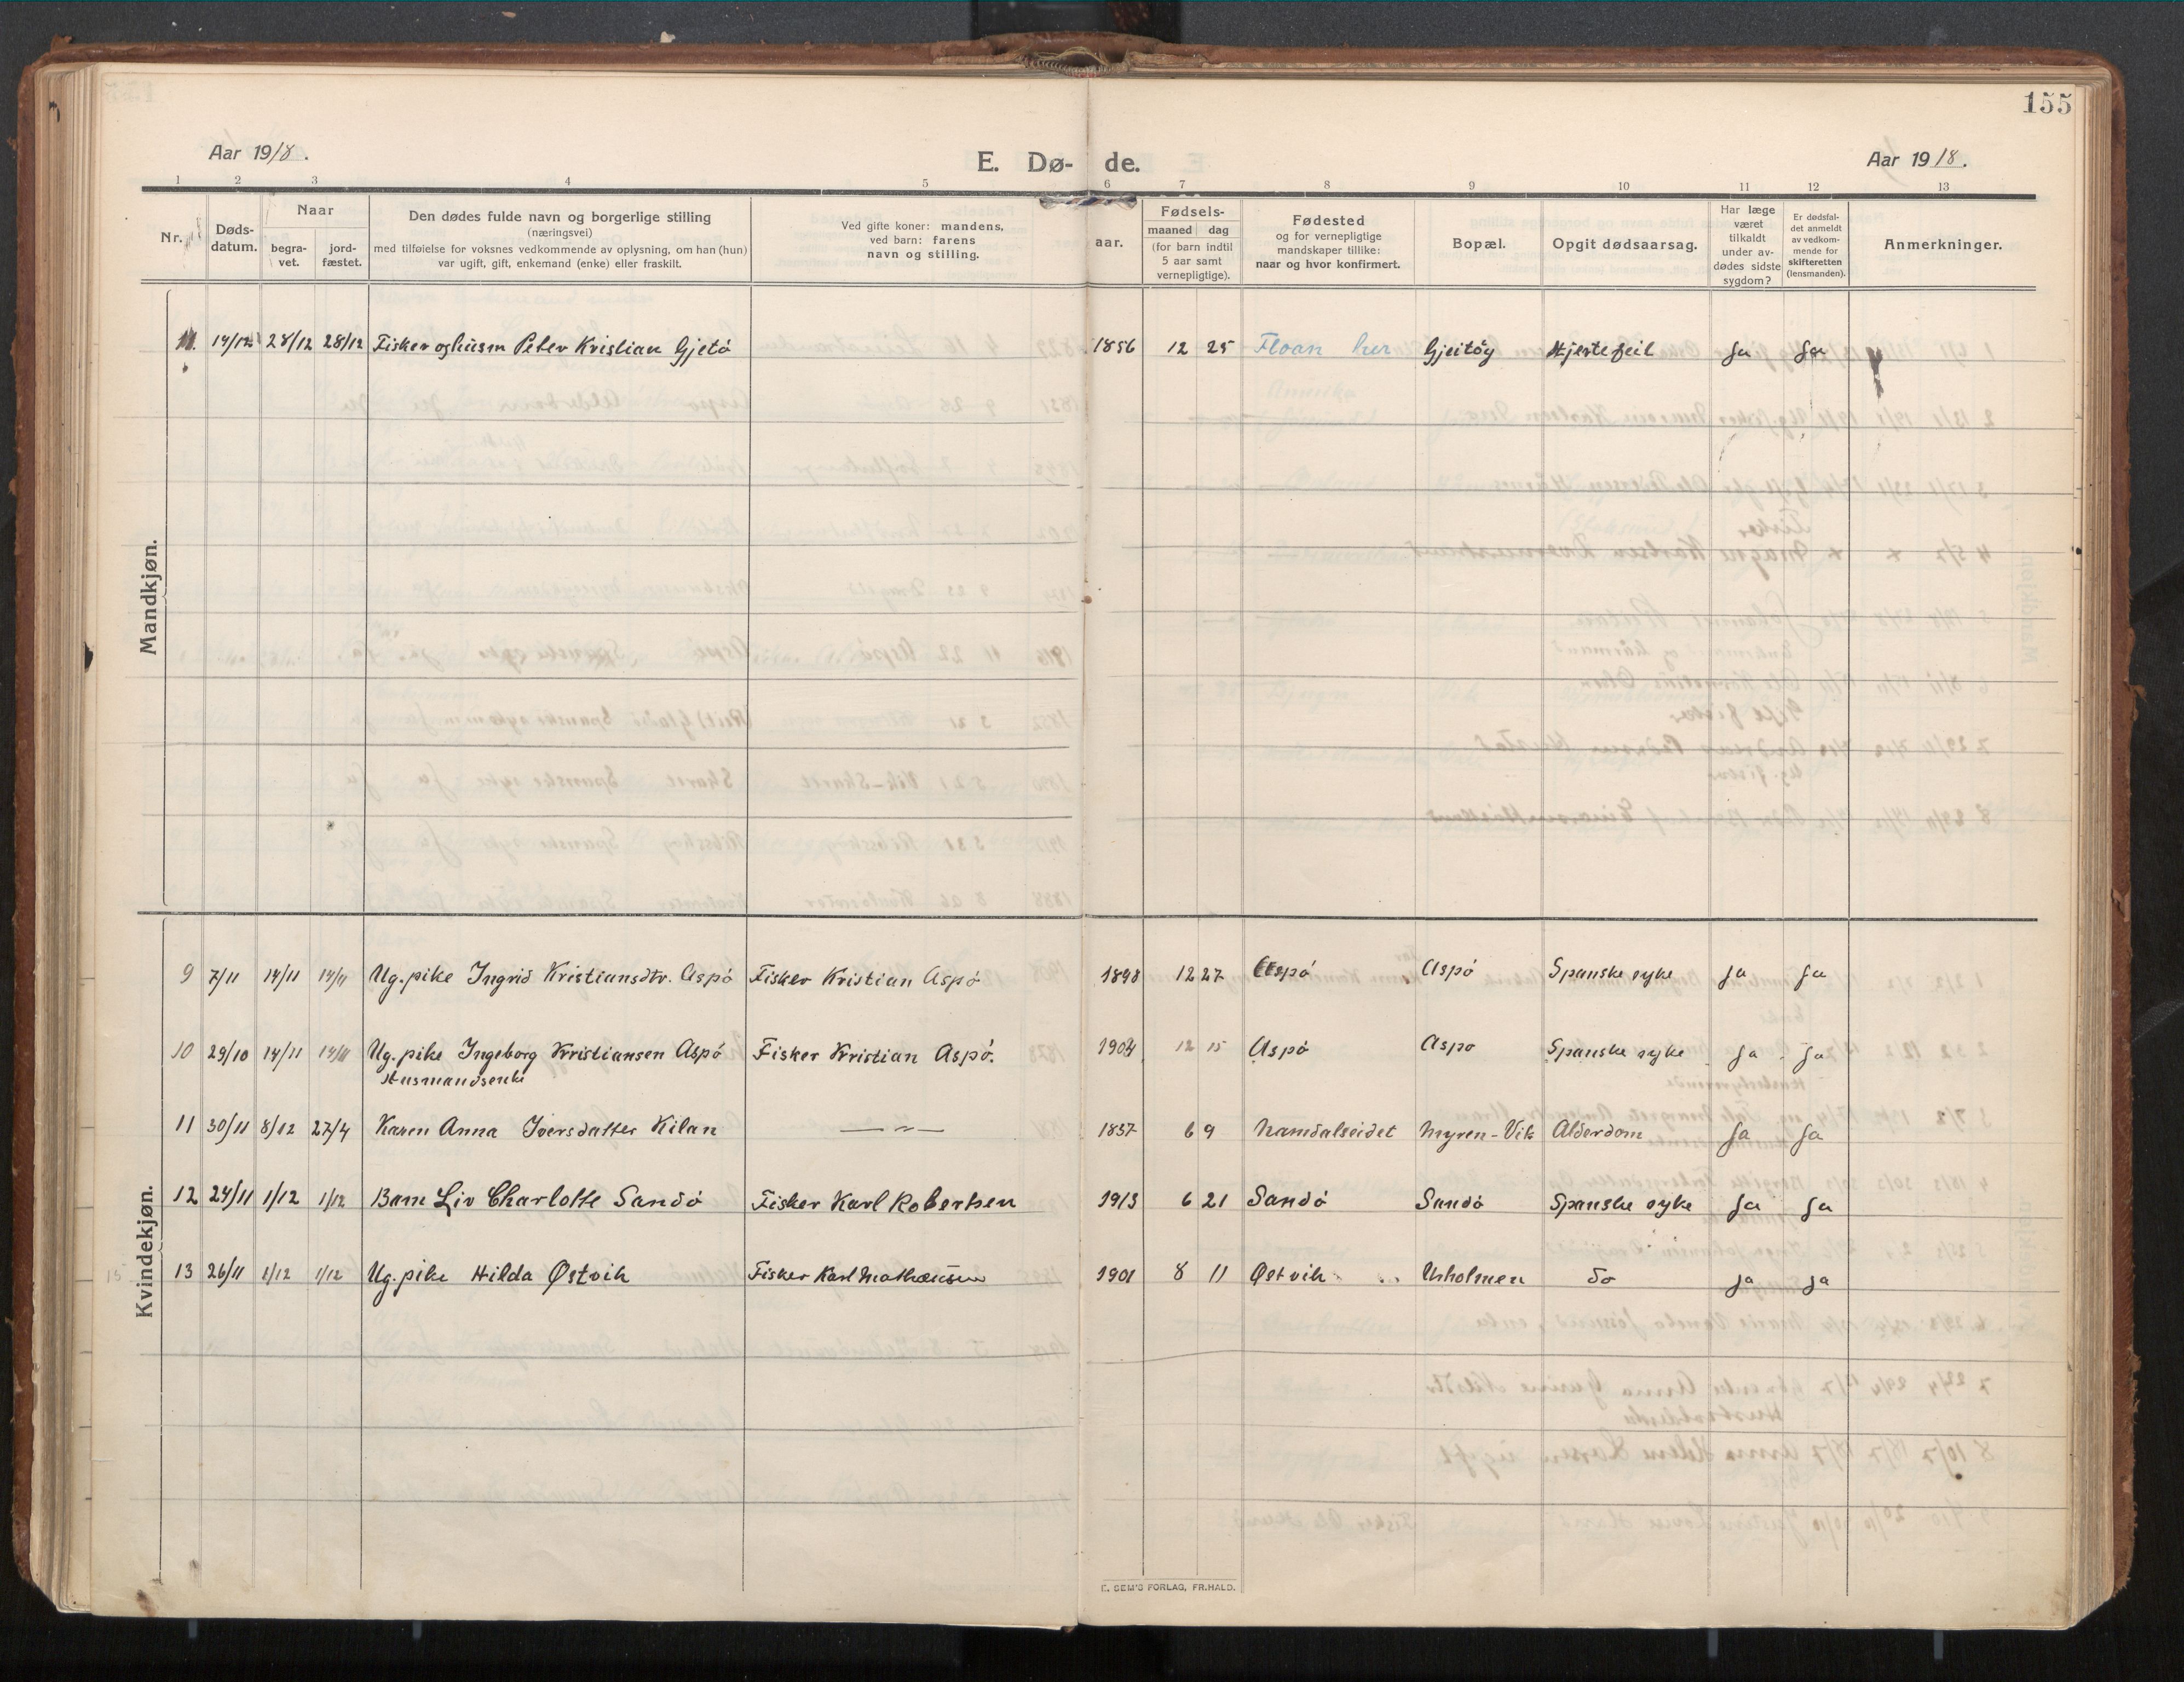 155
Aar 1918.
E. Dø- de.
Aar 1918.
1 2 3 4 5 6 7 8 9 10 11 12 13
Nr. Døds-datum. Naar begra-vet. jord-fæstet. Den dødes fulde navn og borgerlige stilling (næringsvei) med tilføielse for voksnes vedkommende av oplysning, om han (hun) var ugift, gift, enkemand (enke) eller fraskilt. Ved gifte koner: mandens, ved barn: farens navn og stilling. aar. Fødsels- maaned dag (for barn indtil 5 aar samt vernepligtige). Fødested og for vernepligtige mandskaper tillike: naar og hvor konfirmert. Bopæl. Opgit dødsaarsag. Har læge været tilkaldt under av-dødes sidste sygdom? Er dødsfal-det anmeldt av vedkom-mende for skifteretten (lensmanden). Anmerkninger.
Mandkjøn.
11. 19/12 28/12 28/12 Fisker og husm Peter Kristian Gjetø 1856 12 25 Floan her Gjeitøy Hjertefeil Ja Ja
Kvindekjøn.
9 7/11 14/11 14/11 Ug. pike Ingrid Kristiansdtr. Aspø Fisker Kristian Aspø 1898 12 27 Aspø Aspø Spanske syke Ja Ja
10 29/10 14/11 14/11 Ug. pike Ingeborg Kristiansen Aspø Fisker Kristian Aspø. 1904 12 15 Aspø Aspø Spanske syke Ja Ja
Husmandsenke
11 30/11 8/12 27/4 Karen Anna Iversdatter Kilan — " — 1837 6 9 Namdalseidet Myren-Vik Alderdom Ja Ja
12 24/11 1/12 1/12 Barn Liv Charlotte Sandø Fisker Karl Robertsen 1913 6 21 Sandø Sandø Spanske syke Ja Ja
13 26/11 1/12 1/12 Ug. pike Hilda Østvik Fisker Karl Mathæussen 1901 8 11 Østvik Urholmen do Ja Ja
E. SEM'S FORLAG, FR.HALD.